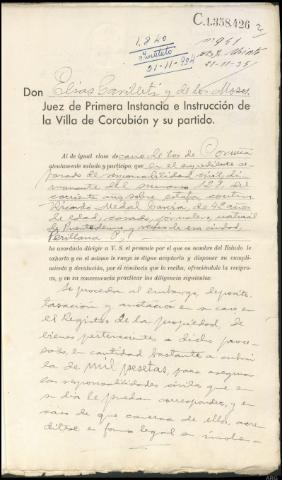 C.1.338.426
1.840
21-11-934
21-11-35
Don Elias Canillas y de los Mozos,
Juez de Primera Instancia e Instrucción de
la Villa de Corcubión y su partido.
Al de igual clase de de los de Coruña
atentamente saludo y participo, que en el expediente se
para de responsabilidad civil, di-
manante del sumario 129 del
corriente año, sobre estafa contra
Ricardo García, de 42 años
de edad, casado, jornalero, natural
de Puentedeume y vecino de esa ciudad,
he acordado dirigir a V. S. el presente por el que en nombre del Estado le
exhorto y en el mismo le ruego se digne aceptarlo y disponer su cumpli-
miento y devolución, por el conducto que lo reciba, ofreciéndole la recípro-
ca, y en su consecuencia practicar las diligencias siguientes:
Se proceda al embargo, depósito,
tasación y anotación en su caso en
el Registro de la propiedad, de
bienes pertenecientes a dicho proce-
sado, en cantidad bastante a cubrir
la de mil pesetas, para asegurar
las responsabilidades civiles que en
su día le puedan corresponder, y en
caso de que carezca de ellos, acre-
dítese en forma legal su insolven-